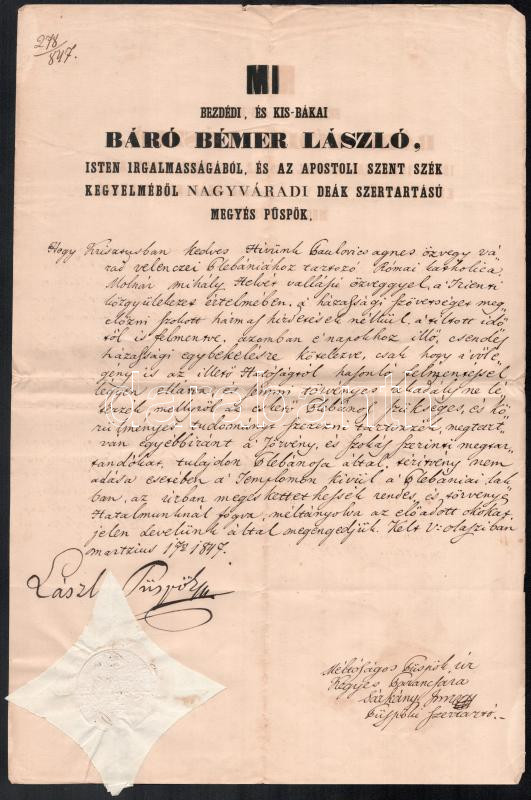 278/847.
MI
BEZDÉDI, ÉS KIS-BÁKAI
BÁRÓ BÉMER LÁSZLÓ,
ISTEN IRGALMASSÁGÁBÓL, ÉS AZ APOSTOLI SZENT SZÉK
KEGYELMÉBŐL NAGYVÁRADI DEÁK SZERTARTÁSÚ
MEGYÉS PÜSPÖK.
Hogy Krisztusban kedves Hívünk Paulovics agnes özvegy vá
rad velenczei Plebániához tartozó Római catholica,
Molnár mihály Helvét vallású özveggyel, a Trienti
közgyülekezet értelmében, a házassági szövetséget meg
előzni szokott hármas hirdetések nélkül, a tiltott idő
től is felmentve, azomban é napokhoz illő, csendes
házassági egybekelésre kötelezve, csak hogy a vőle
gény is az illető Hatóságtól hasonló felmentéssel
legyen ellátva, és semmi törvényes akadály ne lé
tezzék mellyről az illető Plebános szükséges, és kö
rülményes tudományt szerezni tartozzék, megtart
ván egyébbiránt a Törvény, és szokás szerint megtar
tandókat, tulajdon Plebánosa által, térítvény nem
adása esetében a Templomon kívül a Plebániai lak
ban, az úrban megeskettethessék rendes, és törvényes
Hatalmunknál fogva, méltányolva az előadott okokat,
jelen levelünk által megengedjük. Kelt V: olasziban
martzius 1847.
László Püspök
Méltóságos Püspök úr
Kegyes Parancsára
Sárkány
Püspöki Szertartó.
darabanth